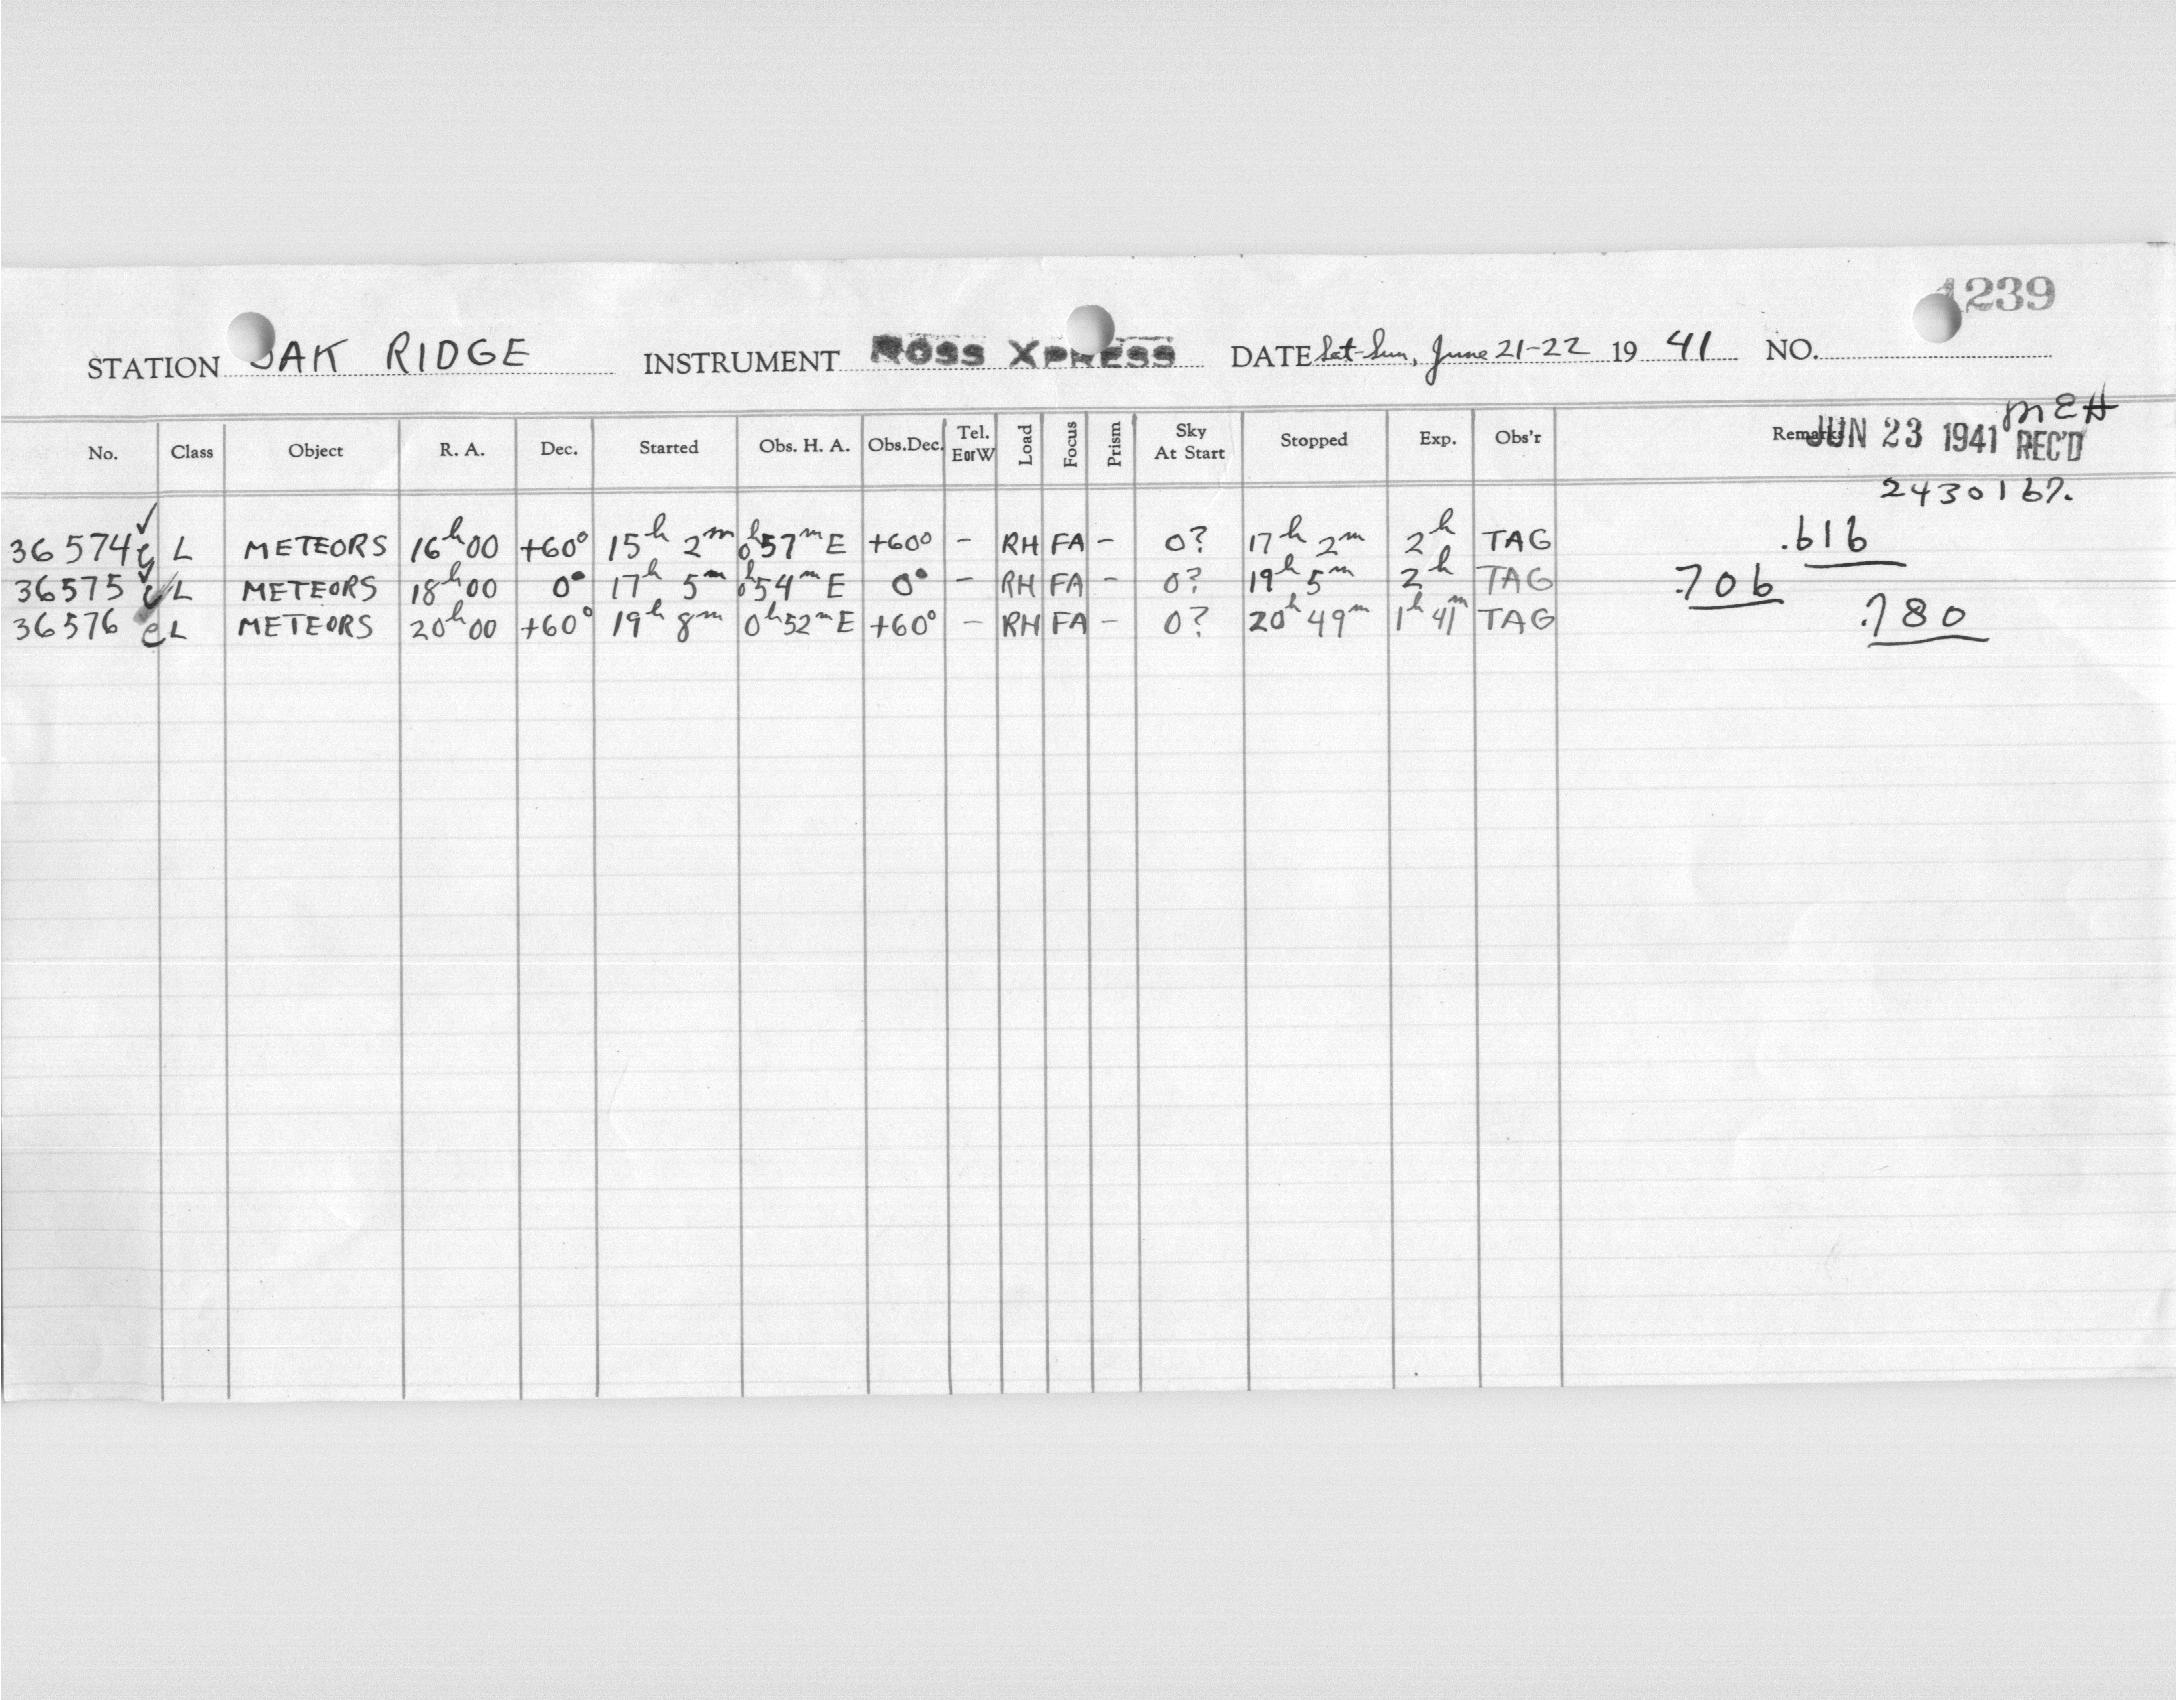 1239
STATION OAK RIDGE INSTRUMENT ROSS XPRESS DATE Sat-Sun, June 21-22 19 41 NO.
MEH
No. Class Object R. A. Dec. Started Obs. H. A. Obs.Dec. Tel. EorW Load Focus Prism Sky At Start Stopped Exp. Obs'r Remarks JUN 23 1941 REC'D
2430167.
36574 e L METEORS 16h00 +60° 15h 2m 0h57m E +60° - RH FA - 0? 17h 2m 2h TAG .616
36575 e L METEORS 18h00 0° 17h 5m 0h54m E 0° - RH FA - 0? 19h 5m 2h TAG .706
36576 e L METEORS 20h00 +60° 19h 8m 0h52m E +60° - RH FA - 0? 20h 49m 1h 41m TAG .780